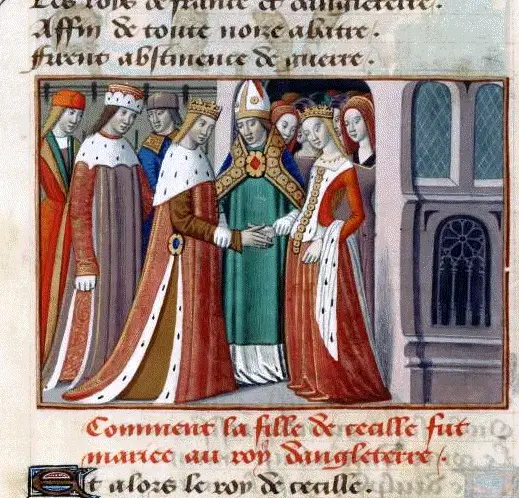 Les roys de france et dangleterre.
Affin de toute noise abatre.
furent abstinence de guerre.
Comment la fille de cecille fut
mariee au roy dangleterre.
Et alors le roy de cecille.